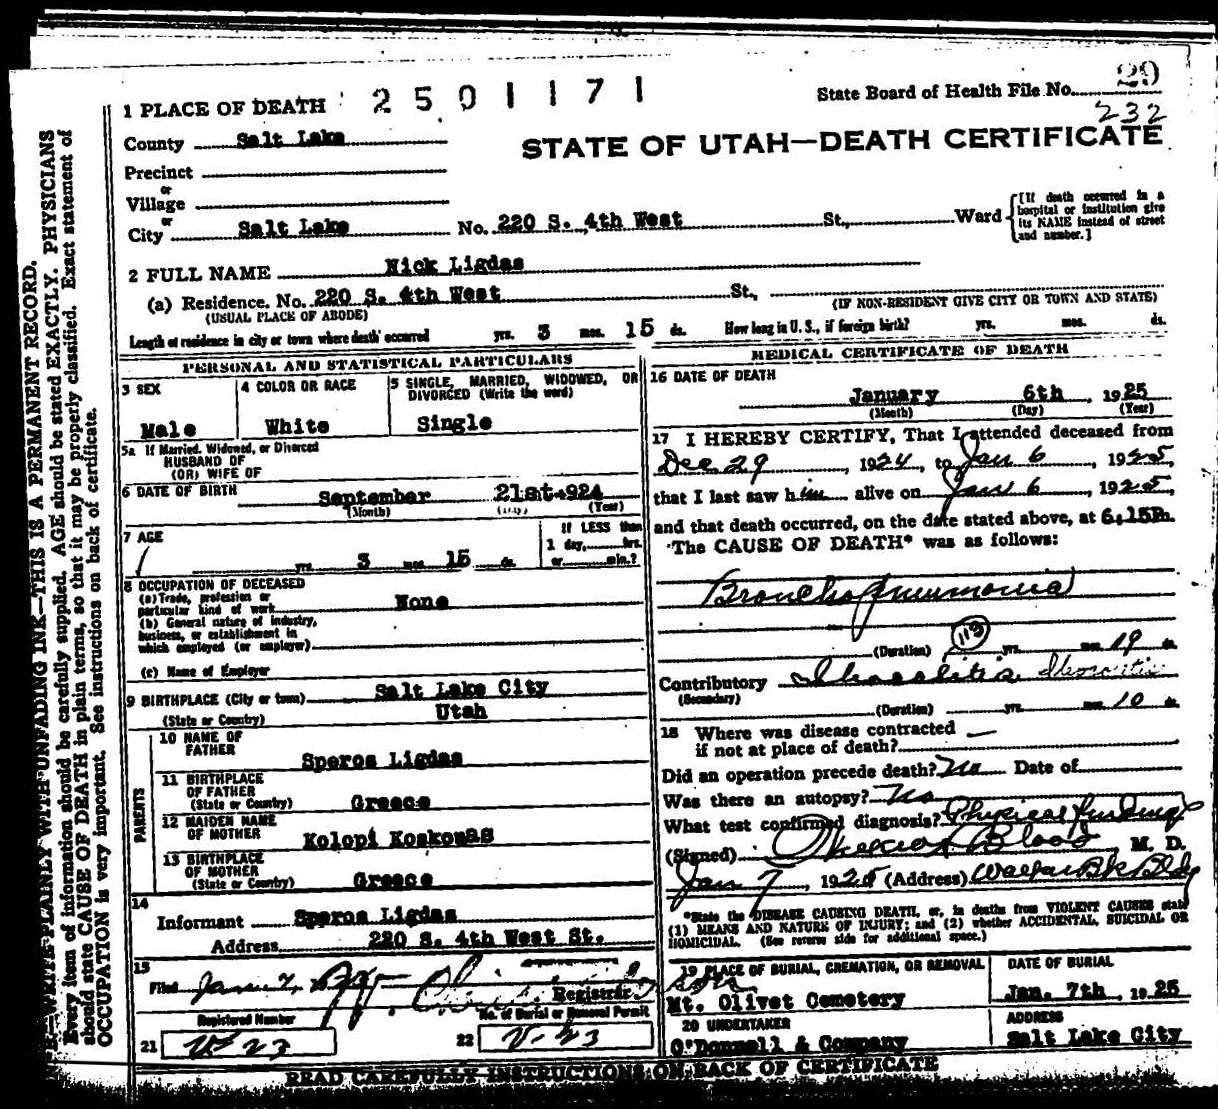 29
1 PLACE OF DEATH 2501171 State Board of Health File No.
232
County Salt Lake
STATE OF UTAH—DEATH CERTIFICATE
Precinct
or
Village
or
City Salt Lake No. 220 S. 4th West St., Ward
[If death occurred in a
hospital or institution give
its NAME instead of street
and number.]
2 FULL NAME Nick Ligdas
(a) Residence. No. 220 S. 4th West St.,
(USUAL PLACE OF ABODE) (IF NON-RESIDENT GIVE CITY OR TOWN AND STATE)
Length of residence in city or town where death occurred yrs. 3 mos. 15 ds. How long in U. S., if foreign birth? yrs. mos. ds.
PERSONAL AND STATISTICAL PARTICULARS
3 SEX
Male
4 COLOR OR RACE
White
5 SINGLE, MARRIED, WIDOWED, OR
DIVORCED (Write the word)
Single
5a If Married, Widowed, or Divorced
HUSBAND OF
(OR) WIFE OF
6 DATE OF BIRTH
September 21st-924
(Month) (Day) (Year)
7 AGE
yrs. 3 mos. 15 ds.
If LESS than
1 day, hrs.
or min.?
8 OCCUPATION OF DECEASED
(a) Trade, profession or
particular kind of work None
(b) General nature of industry,
business, or establishment in
which employed (or employer)
(c) Name of Employer
9 BIRTHPLACE (City or town) Salt Lake City
(State or Country) Utah
PARENTS
10 NAME OF
FATHER Speros Ligdas
11 BIRTHPLACE
OF FATHER
(State or Country) Greece
12 MAIDEN NAME
OF MOTHER Kolopi Koskomas
13 BIRTHPLACE
OF MOTHER
(State or Country) Greece
14
Informant Speros Ligdas
Address 220 S. 4th West St.
15
Filed Jan 7,
Registrar
Registered Number
21 V-23
No. of Burial or Removal Permit
22 V-23
MEDICAL CERTIFICATE OF DEATH
16 DATE OF DEATH
January 6th, 1925
(Month) (Day) (Year)
17 I HEREBY CERTIFY, That I attended deceased from
Dec 29, 1924, to Jan 6, 1925,
that I last saw him alive on Jan 6, 1925,
and that death occurred, on the date stated above, at 6.15P.m.
The CAUSE OF DEATH* was as follows:
Broncho pneumonia
113
(Duration) yrs. mos. 19 ds.
Contributory
(Secondary)
(Duration) yrs. mos. 10 ds.
18 Where was disease contracted —
if not at place of death?
Did an operation precede death? No Date of
Was there an autopsy? No
What test confirmed diagnosis? Physical findings
(Signed) Blood, M. D.
Jan 7, 1925 (Address) Walker Bk Bldg
*State the DISEASE CAUSING DEATH, or, in deaths from VIOLENT CAUSES state
(1) MEANS AND NATURE OF INJURY; and (2) whether ACCIDENTAL, SUICIDAL OR
HOMICIDAL. (See reverse side for additional space.)
19 PLACE OF BURIAL, CREMATION, OR REMOVAL
Mt. Olivet Cemetery
DATE OF BURIAL
Jan. 7th, 1925
20 UNDERTAKER
O'Donnell & Company
ADDRESS
Salt Lake City
READ CAREFULLY INSTRUCTIONS ON BACK OF CERTIFICATE
WRITE PLAINLY WITH UNFADING INK—THIS IS A PERMANENT RECORD.
Every item of information should be carefully supplied. AGE should be stated EXACTLY. PHYSICIANS
should state CAUSE OF DEATH in plain terms, so that it may be properly classified. Exact statement of
OCCUPATION is very important. See instructions on back of certificate.